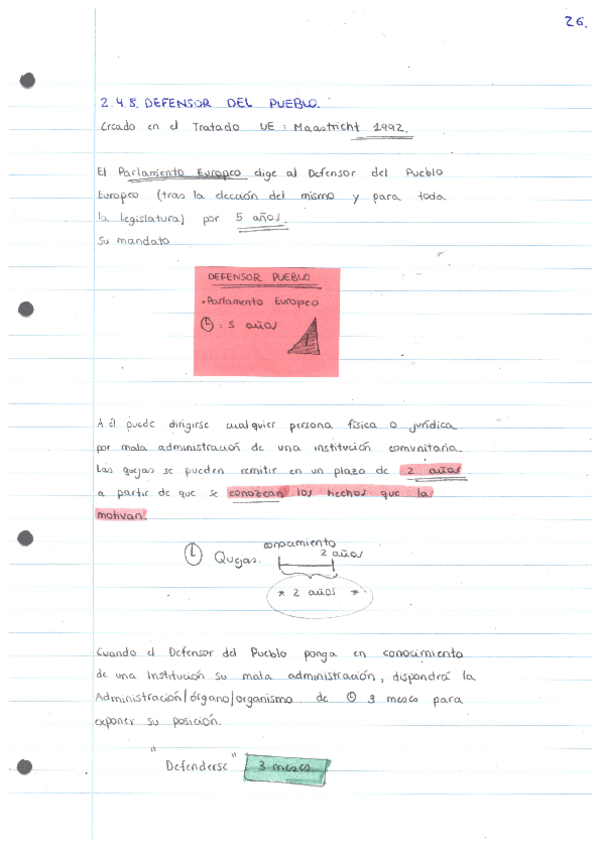 26.
2.4.8. DEFENSOR DEL PUEBLO.
Creado en el Tratado UE: Maastricht 1992.
El Parlamento Europeo elige al Defensor del Pueblo
Europeo (tras la elección del mismo y para toda
la legislatura) por 5 años.
Su mandato
DEFENSOR PUEBLO
• Parlamento Europeo
: 5 años
A él puede dirigirse cualquier persona física o jurídica
por mala administración de una institución comunitaria.
Las quejas se pueden remitir en un plazo de 2 años
a partir de que se conozcan los hechos que la
motivan.
conocimiento
2 años
Quejas.
* 2 años *
Cuando el Defensor del Pueblo ponga en conocimiento
de una Institución su mala administración, dispondrá la
Administración/órgano/organismo de 3 meses para
exponer su posición.
"Defenderse" 3 meses